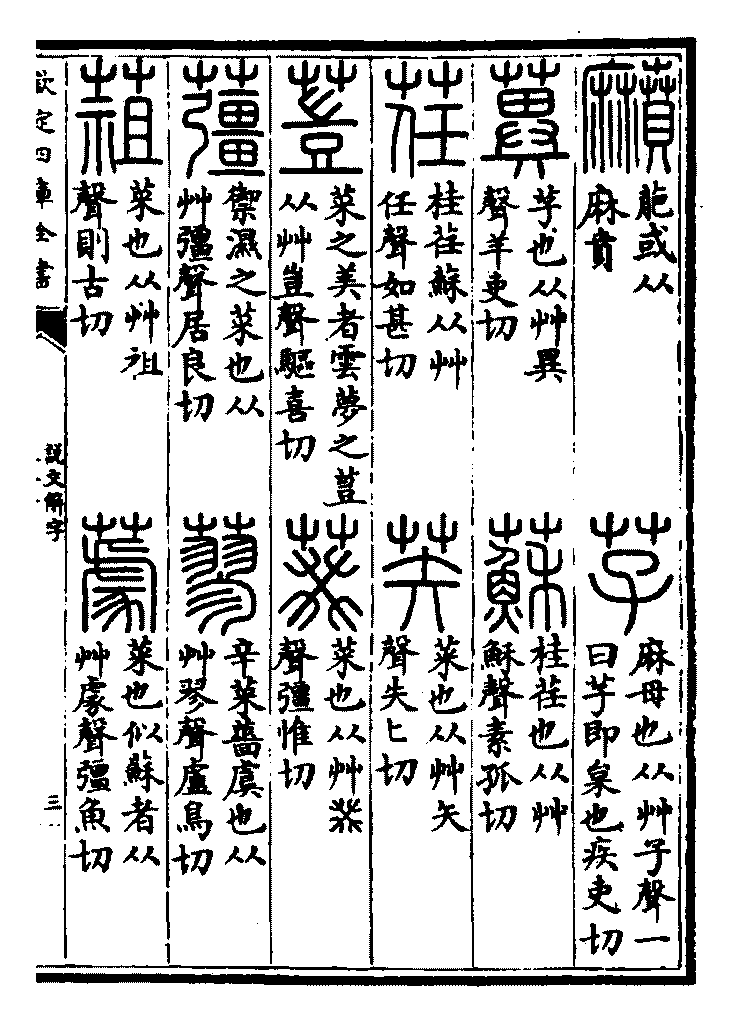 𪎰
萉或从
麻賁
芓
麻母也从艸子聲一
曰芓即枲也疾吏切
𦳝
芓也从艸異
聲羊吏切
蘇
桂荏也从艸
穌聲素孤切
荏
桂荏蘇从艸
任聲如甚切
𦭧
菜也从艸矢
聲失匕切
薳
菜之美者雲夢之荳
从艸豈聲驅喜切
葵
菜也从艸癸
聲彊惟切
䕬
禦濕之菜也从
艸彊聲居良切
蓼
辛菜薔虞也从
艸翏聲盧鳥切
葅
菜也从艸祖
聲則古切
蘧
菜也似蘇者从
艸豦聲彊魚切
欽定四庫全書
說文解字
三